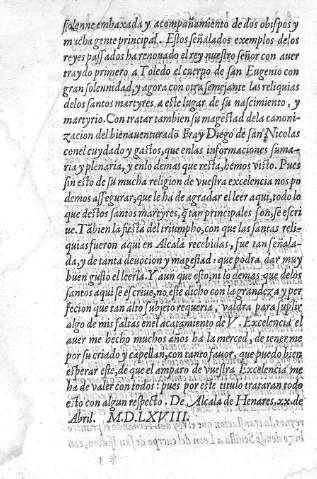 solenne embaxada y acompañamiento de dos obispos y
mucha gente principal. Estos señalados exemplos delos
reyes passados ha renouado el rey nuestro señor con auer
traydo primero a Toledo el cuerpo de san Eugenio con
gran solennidad, y agora con otra semejante las reliquias
delos santos martyres a este lugar de su nascimiento, y
martyrio. Con tratar tambien su magestad dela canoni-
zacion del bienauenturado Fray Diego de san Nicolas
con el cuydado y gastos, que enlas informaciones suma-
ria y plenaria, y enlo demas que resta, hemos visto. Pues
sin esto de su mucha religion de vuestra excelencia nos po
demos assegurar, que le ha de agradar el leer aqui, todo lo
que destos santos martyres, q̃ tan principales son, se escri
ue. Tãbien la fiesta del triumpho, con que las santas reli-
quias fueron aqui en Alcala recebidas, fue tan señala-
da, y de tanta deuocion y magestad: que podra dar muy
buen gusto el leerla. Y aun que esto, ni lo demas que delos
santos aqui se escriue, no este dicho con la grandeza y per
fecion que tan alto subjeto requeria, valdra para suplir
algo de mis faltas en el acatamiento de V. Excelencia el
auer me hecho muchos años ha la merced, de tenerme
por su criado y capellan, con tanto fauor, que puedo bien
esperar este, de que el amparo de vuestra Excelencia me
ha de valer con todos: pues por este titulo trataran todo
esto con algun respecto. De Alcala de Henares. xx. de
Abril. M.D.LXVIII.